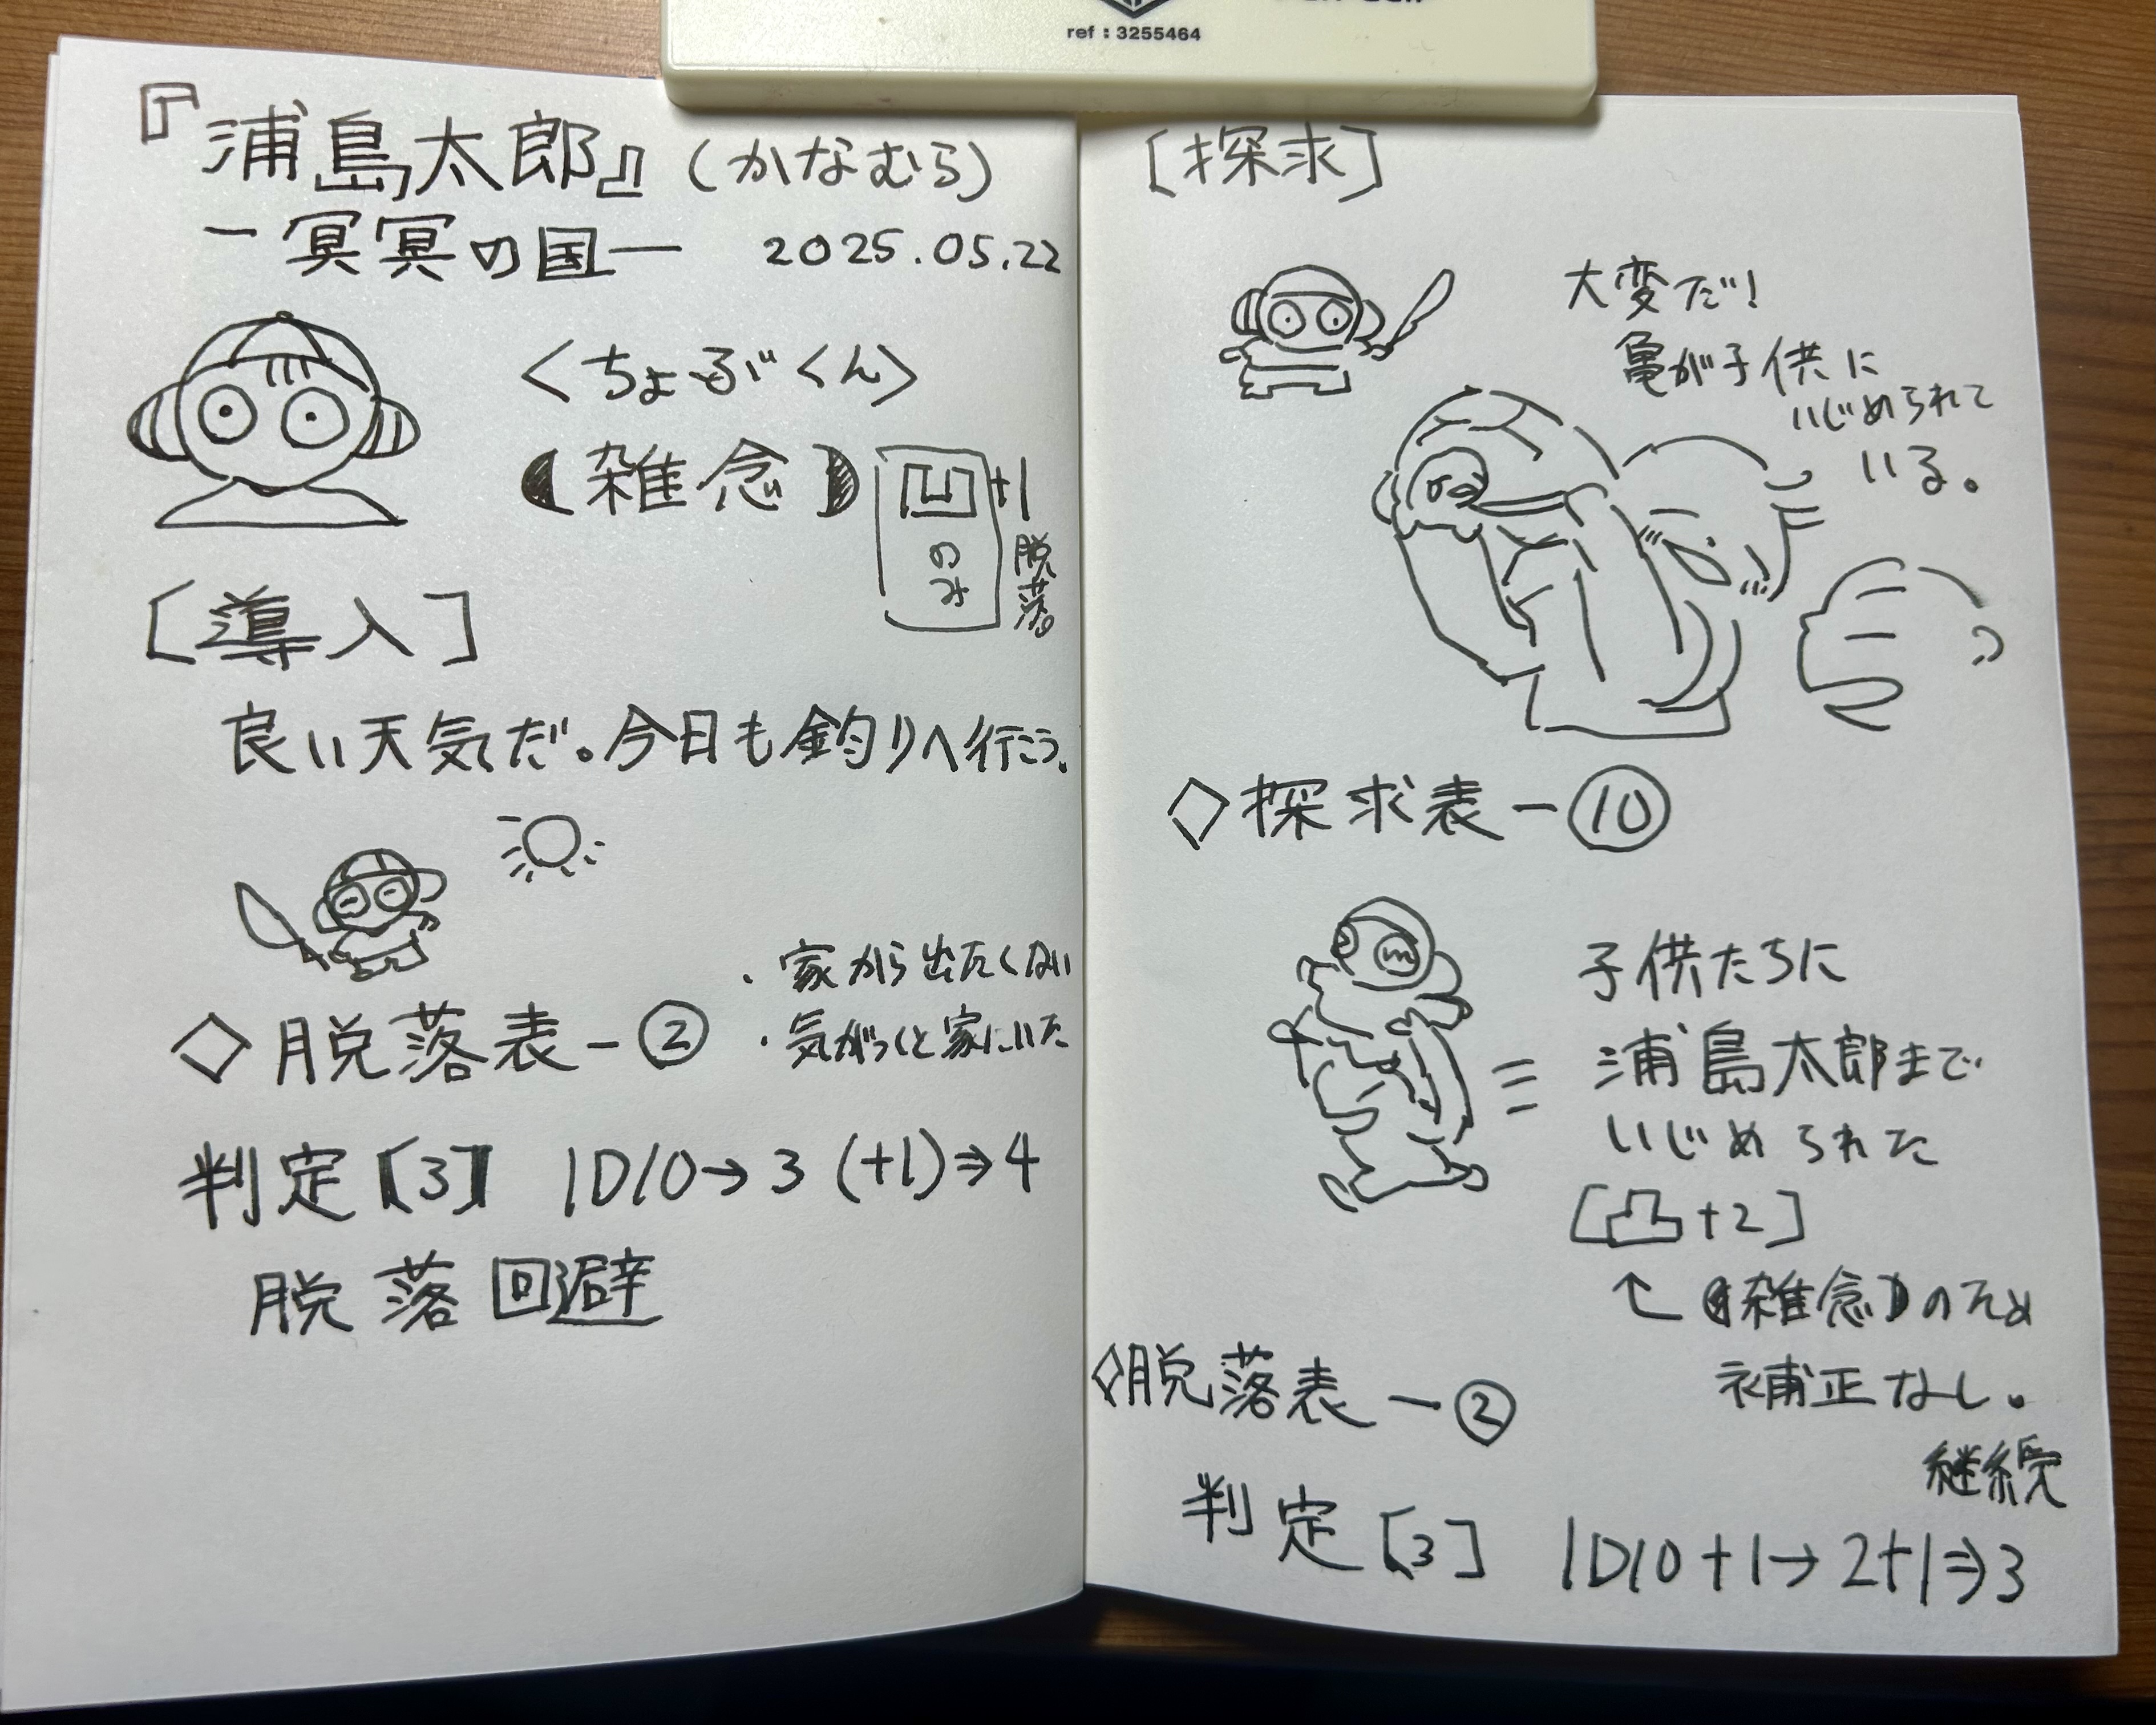 ref : 3255464
『浦島太郎』(かなむら)
ー冥冥の国ー 2025.05.22
<ちょぶくん>
【雑念】凹のみ+1脱落。
[導入]
良い天気だ。今日も釣りへ行こう。
・家から出たくない
◇脱落表-② ・気がつくと家にいた
判定【3】 1D10→3 (+1)⇒4
脱落回避
[探求]
大変だ!
亀が子供に
いじめられて
いる。
◇探求表-⑩
子供たちに
浦島太郎まで
いじめられた
[凸+2]
↑【雑念】のため
補正なし。
◇脱落表-②
継続
判定[3] 1D10+1→2+1⇒3